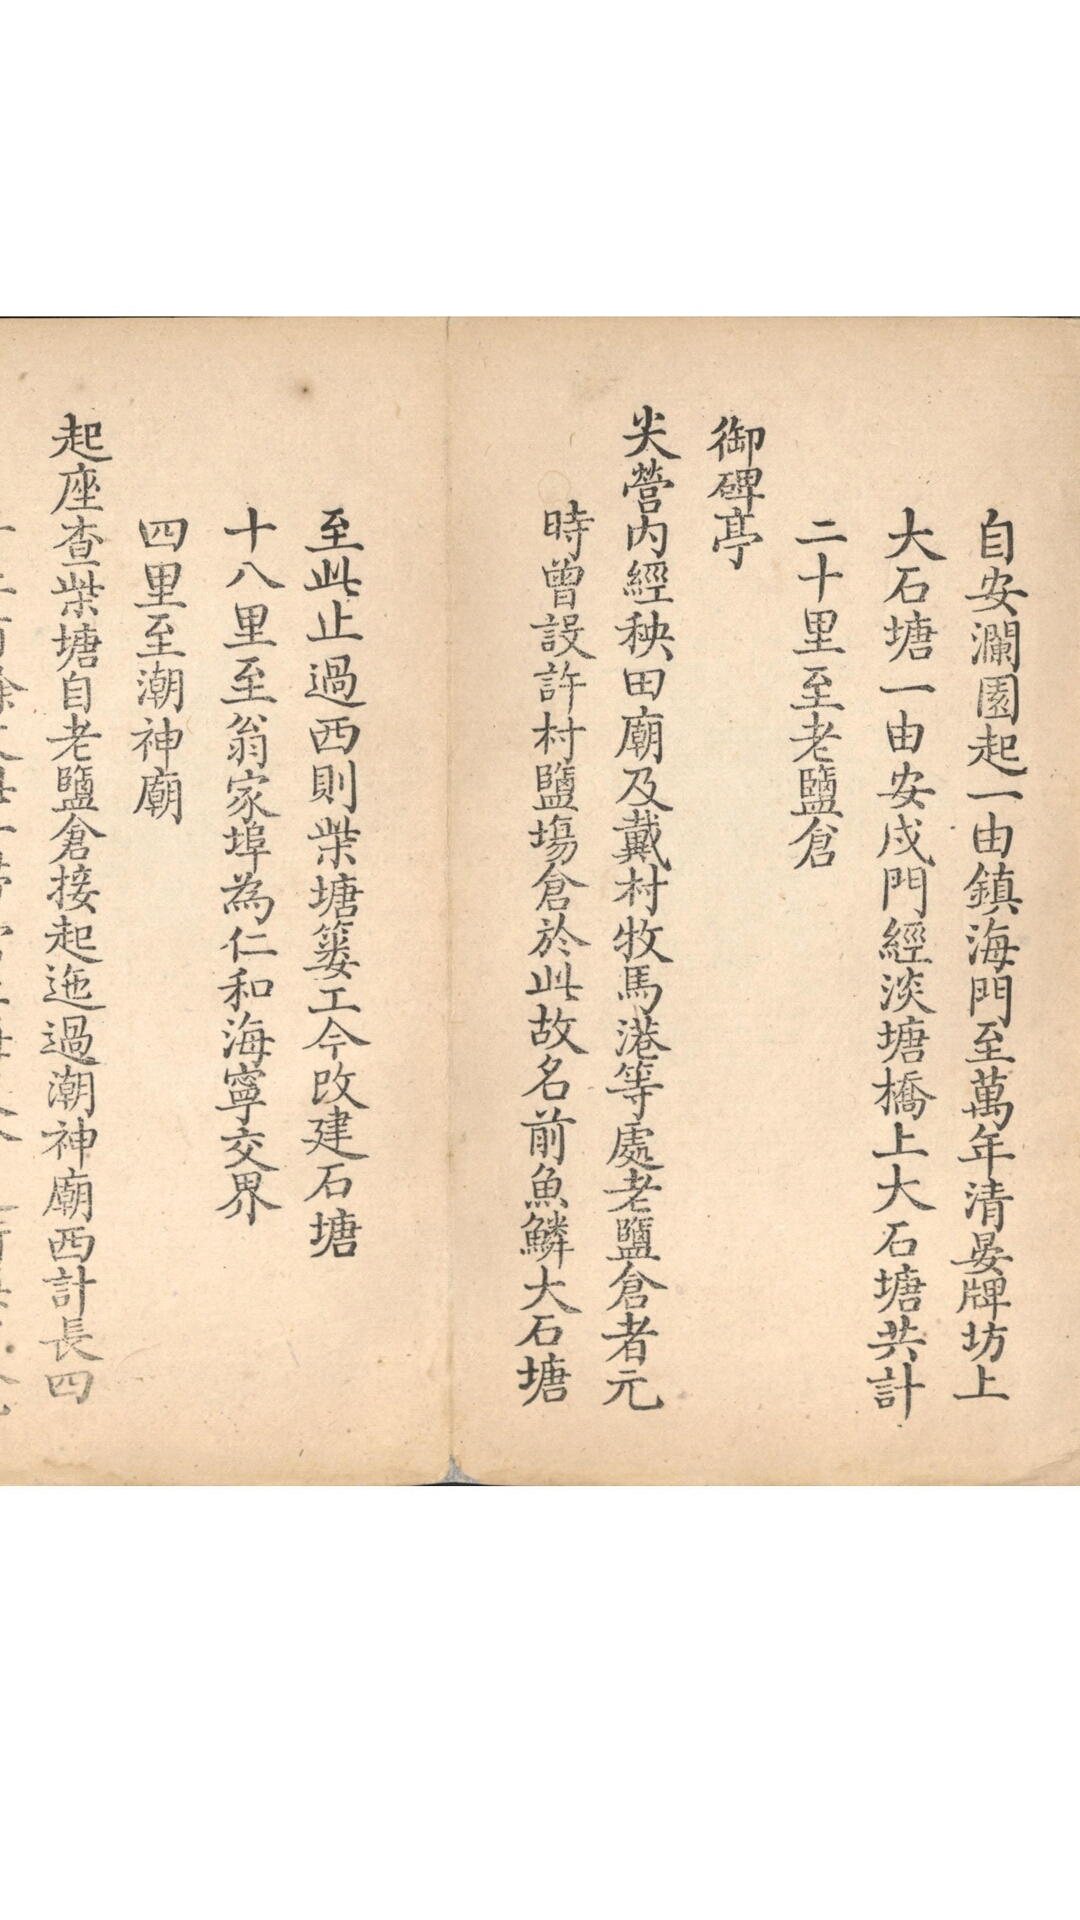 自安瀾園起一由鎮海門至萬年清晏牌坊上
大石塘一由安戍門經淡塘橋上大石塘共計
二十里至老鹽倉
御碑亭
尖營内經秧田廟及戴村牧馬港等處老鹽倉者元
時曾設許村鹽塲倉於此故名前魚鱗大石塘
至此止過西則柴塘簍工今改建石塘
十八里至翁家埠為仁和海寧交界
四里至潮神廟
起座查柴塘自老鹽倉接起迤過潮神廟西計長四